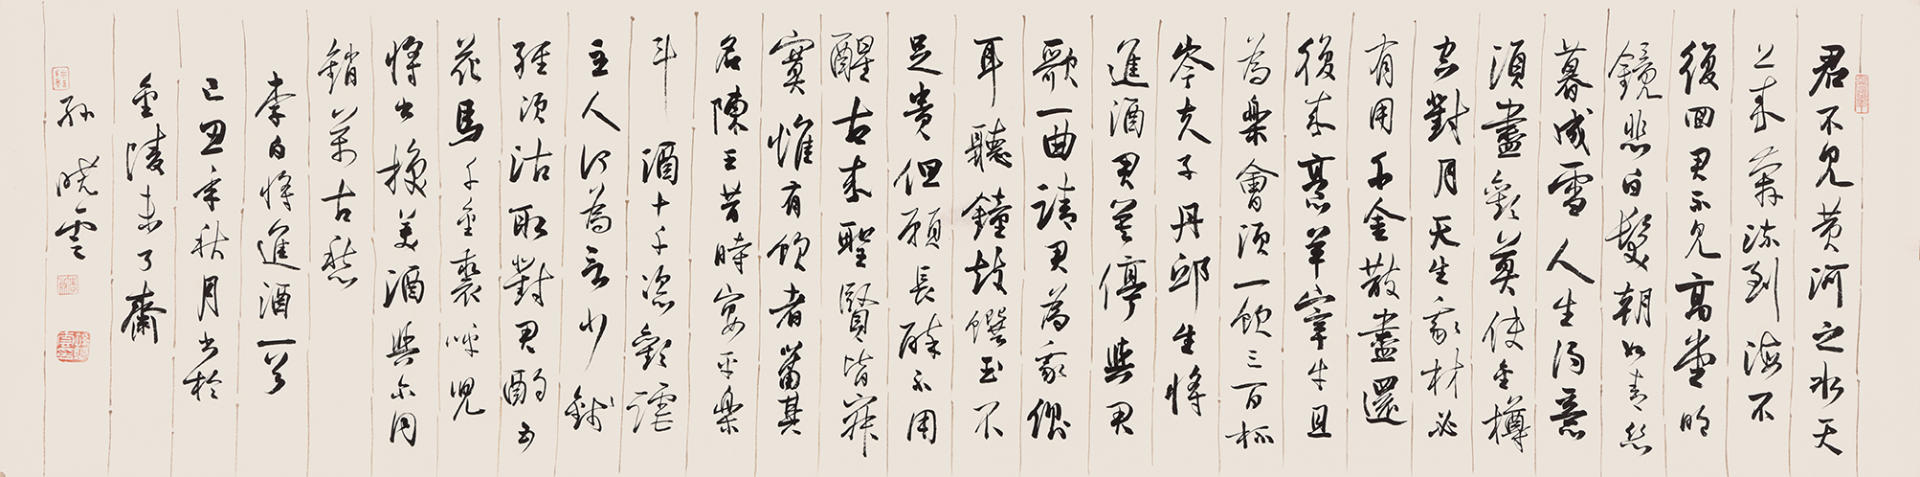 君不見黃河之水天
上來奔流到海不
復回君不見高堂明
鏡悲白髮朝如青絲
暮成雪人生得意
須盡歡莫使金樽
空對月天生我材必
有用千金散盡還
復來烹羊宰牛且
為樂會須一飲三百杯
岑夫子丹邱生將
進酒君莫停與君
歌一曲請君為我傾
耳聽鐘鼓饌玉不
足貴但願長醉不用
醒古來聖賢皆寂
寞惟有飲者留其
名陳王昔時宴平樂
斗酒十千恣歡謔
主人何為言少錢
徑須沽取對君酌五
花馬千金裘呼兒
將出換美酒與爾同
銷萬古愁
李白將進酒一首
己丑年秋月書於
金陵未了齋
孫曉雲